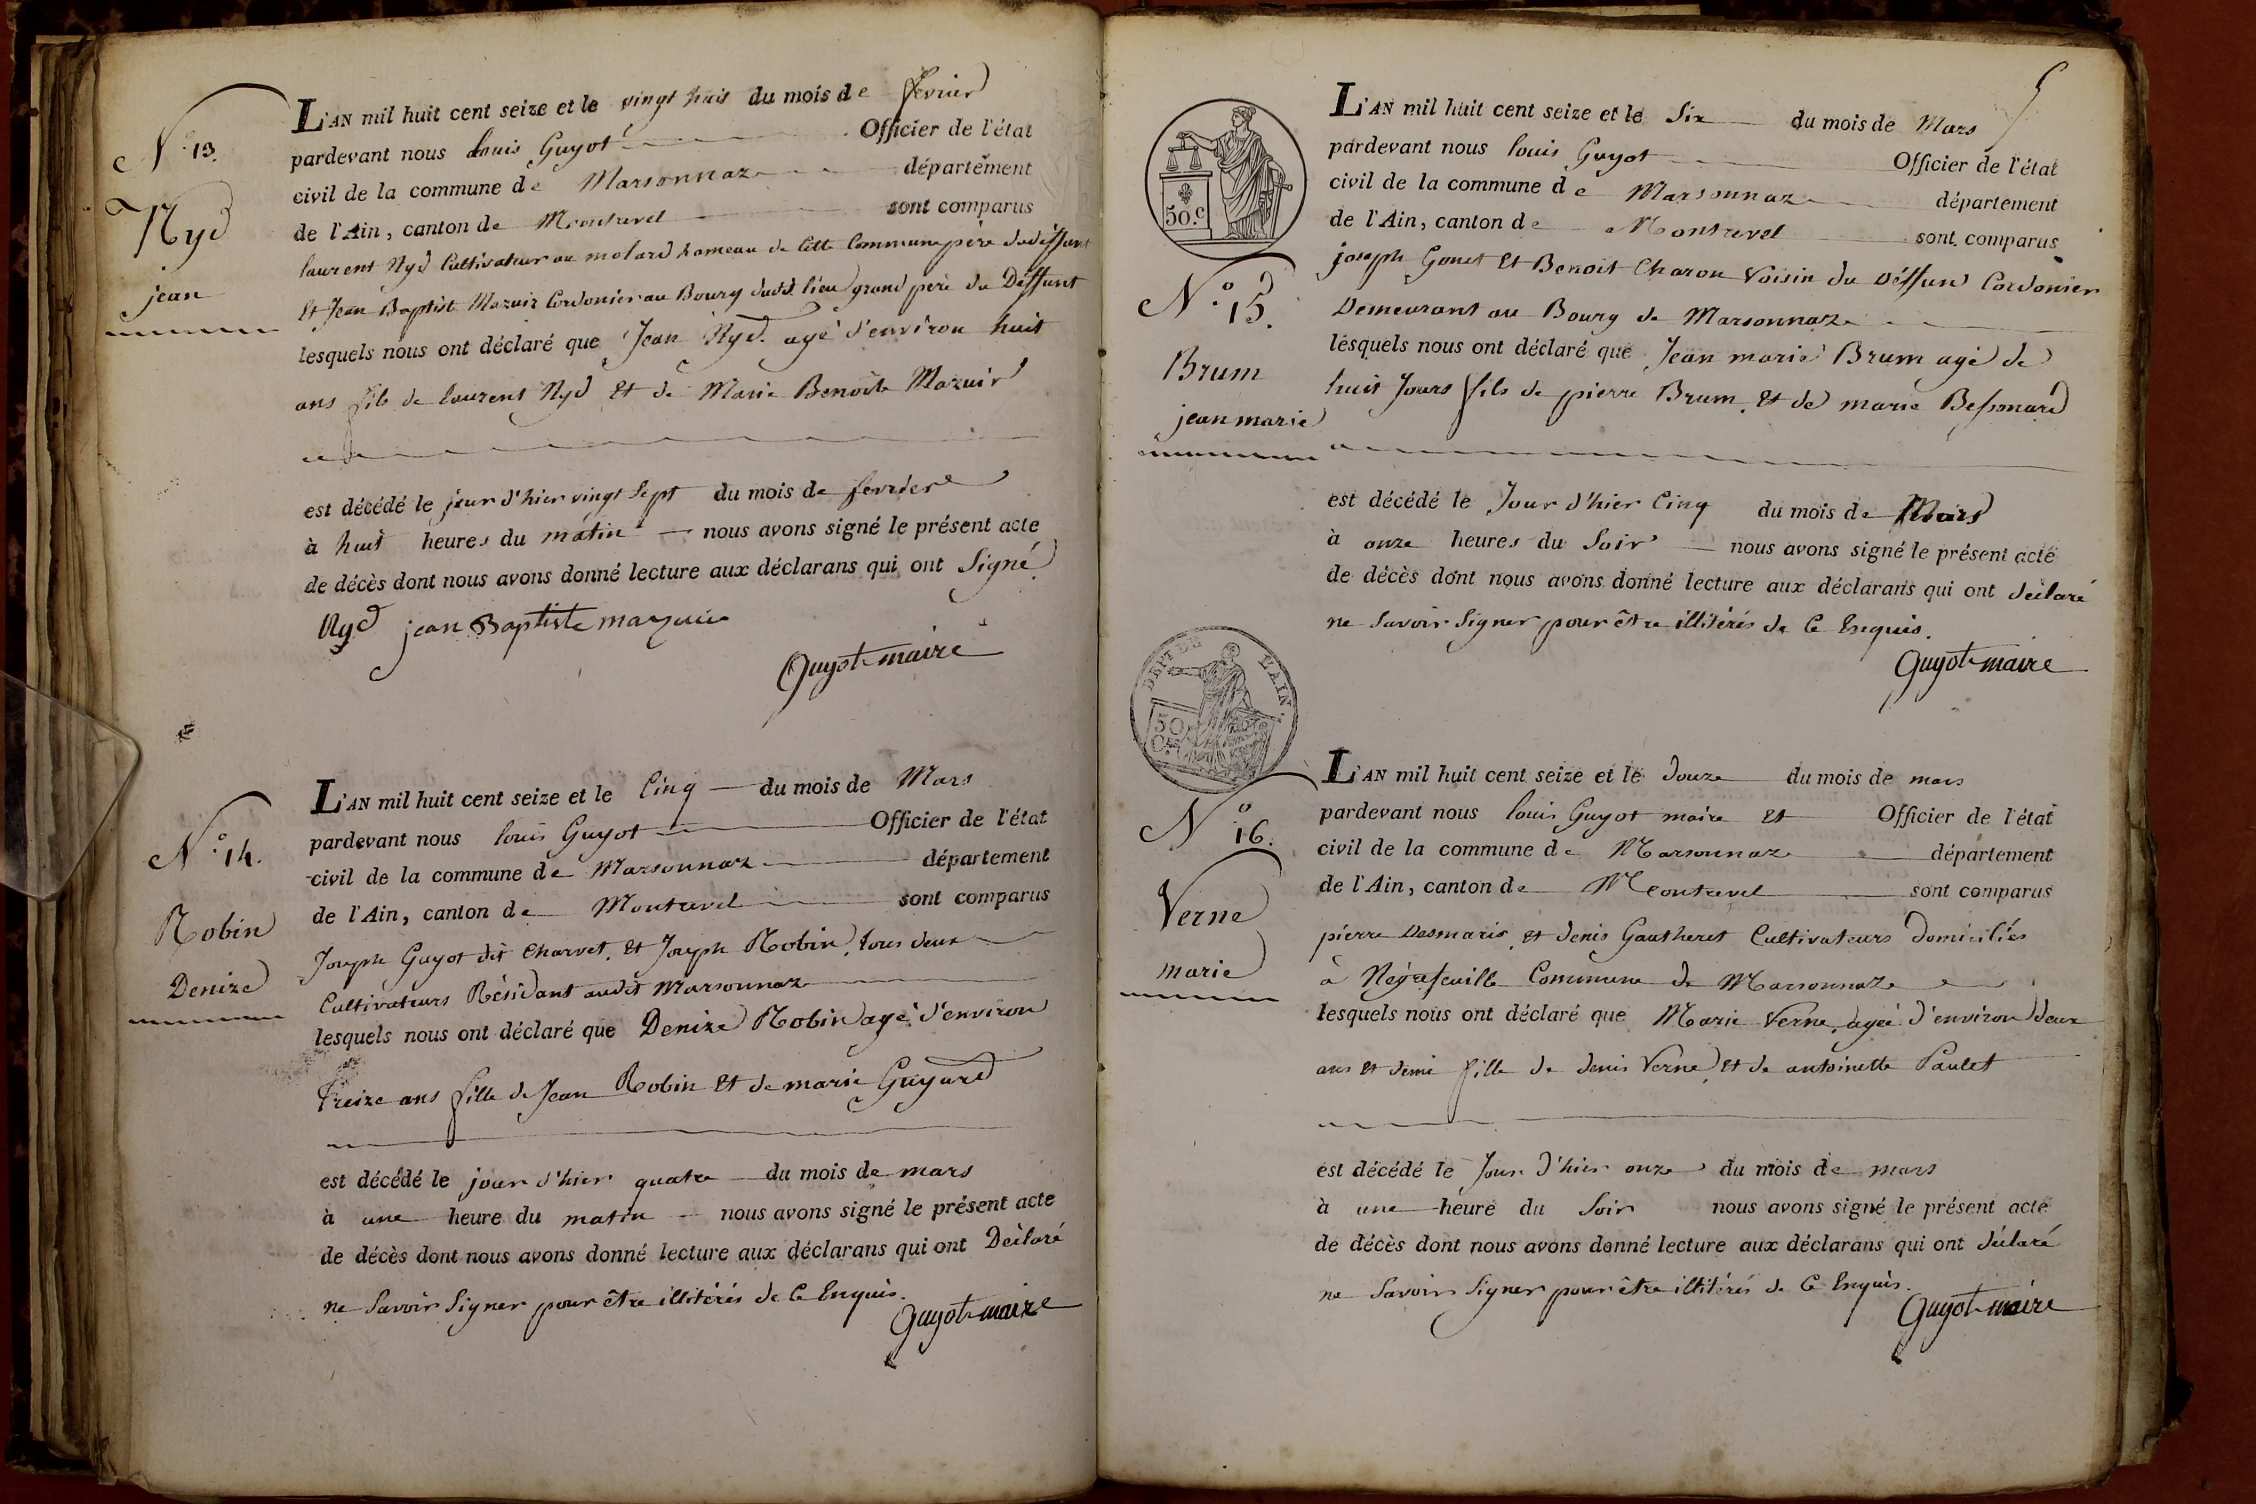 N.º 13.
Nyd
jean
L'AN mil huit cent seize et le vingt huit du mois de fevrier
pardevant nous Louis Guyot Officier de l'état
civil de la commune de Marsonnaz département
de l'Ain, canton de Montrevel sont comparus
laurent Nyd Cultivateur au molard hameau de Cette Commune père du déffunt
Et Jean Baptist Mazuir Cordonier au Bourg dudit lieu grand père du Déffunt
lesquels nous ont déclaré que Jean Nyd. agé d'environ huit
ans fils de laurent Nyd Et de Marie Benoîte Mazuir
est décédé le jour d'hier vingt Sept du mois de fevrier
à huit heures du matin nous avons signé le présent acte
de décès dont nous avons donné lecture aux déclarans qui ont Signé
Nyd jean Baptiste mazuir
Guyot maire
N.º 14.
Robin
Denize
L'AN mil huit cent seize et le Cinq du mois de Mars
pardevant nous louis Guyot Officier de l'état
civil de la commune de Marsonnaz département
de l'Ain, canton de Montrevel sont comparus
Joseph Guyot dit Charvet, Et Joseph Robin, tous deux
Cultivateurs Résidant audit Marsonnaz
lesquels nous ont déclaré que Denize Robin agé d'environ
Treize ans fille de Jean Robin Et de marie Guyard
est décédé le jour d'hier quatre du mois de mars
à une heure du matin nous avons signé le présent acte
de décès dont nous avons donné lecture aux déclarans qui ont Déclaré
ne Savoir Signer pour être illitérés de Ce Enquis.
Guyot maire
5
50.c
N.º 15.
Brum
jean marie
L'AN mil huit cent seize et le Six du mois de Mars
pardevant nous louis Guyot Officier de l'état
civil de la commune de Marsonnaz département
de l'Ain, canton de Montrevel sont comparus
joseph Gonet Et Benoit Charon Voisin du Déffund Cordonier
Demeurant au Bourg de Marsonnaz
lesquels nous ont déclaré que Jean marie Brum agé de
huit Jours fils de pierre Brum, Et de marie Bessonard
est décédé le Jour d'hier Cinq du mois de Mars
à onze heures du Soir nous avons signé le présent acte
de décès dont nous avons donné lecture aux déclarans qui ont déclaré
ne Savoir Signer pour être illitérés de Ce Enquis.
Guyot maire
L'AIN.
50
Ces
N.º 16.
Verne
marie
L'AN mil huit cent seize et le douze du mois de mars
pardevant nous louis Guyot maire Et Officier de l'état
civil de la commune de Marsonnaz département
de l'Ain, canton de Montrevel sont comparus
pierre Desmaris, Et denis Gautheret Cultivateurs domiciliés
à Négrefeuille Commune de Marsonnaz
lesquels nous ont déclaré que Marie Verne, agée d'environ deux
ans Et demi fille de denis Verne, Et de antoinette Paulet
est décédé le Jour d'hier onze du mois de mars
à une heure du Soir nous avons signé le présent acte
de décès dont nous avons donné lecture aux déclarans qui ont déclaré
ne Savoir Signer pour être illitérés de Ce Enquis.
Guyot maire